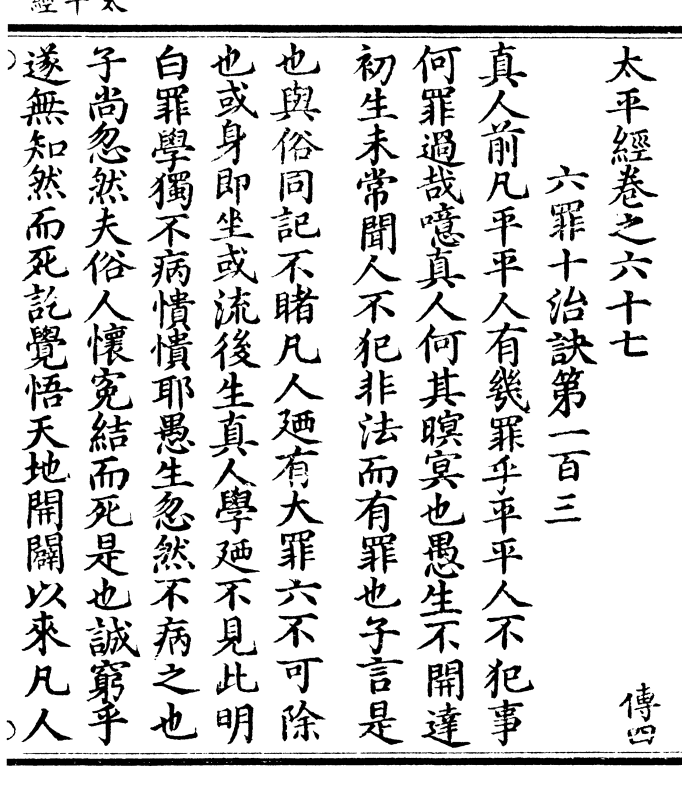 太平經
太平經卷之六十七
傳四
六罪十治訣第一百三
真人前凡平平人有幾罪乎平平人不犯事
何罪過哉噫真人何其暝冥也愚生不開達
初生未常聞人不犯非法而有罪也子言是
也與俗同記不睹凡人廼有大罪六不可除
也或身即坐或流後生真人學廼不見此明
白罪學獨不病憒憒耶愚生忽然不病之也
子尚忽然夫俗人懷寃結而死是也誠窮乎
遂無知然而死訖覺悟天地開闢以來凡人